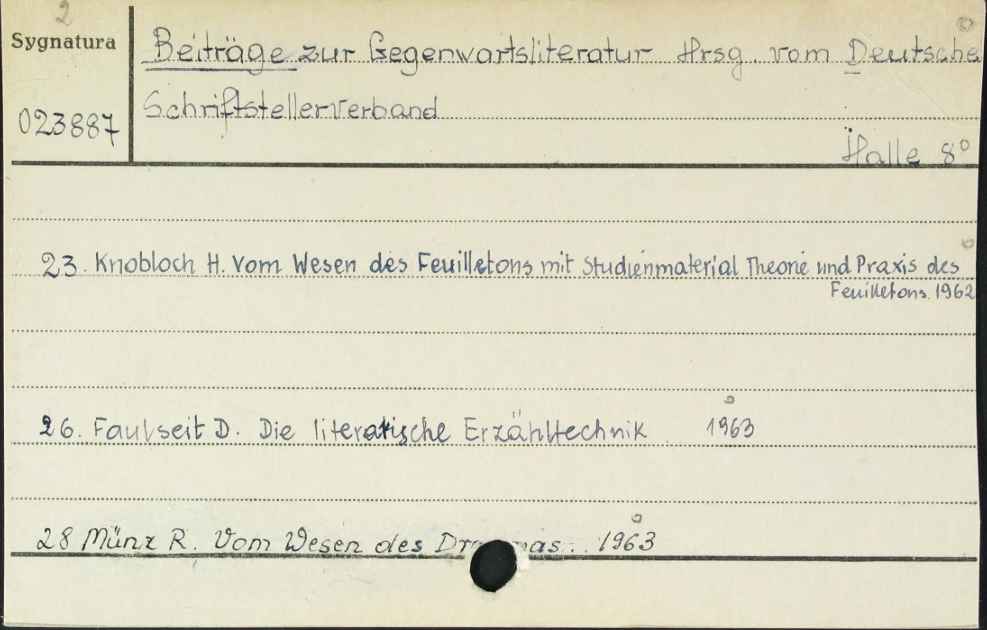 2
Sygnatura
Beiträge zur Gegenwartsliteratur Hrsg. vom Deutsche
Schriftstellerverband
023887
Halle 8°
23. Knobloch H. Vom Wesen des Feuilletons mit Studienmaterial Theorie und Praxis des
Feuilletons. 1962
26. Faulseit D. Die literarische Erzähltechnik 1963
28 Münz R. Vom Wesen des Dramas. 1963